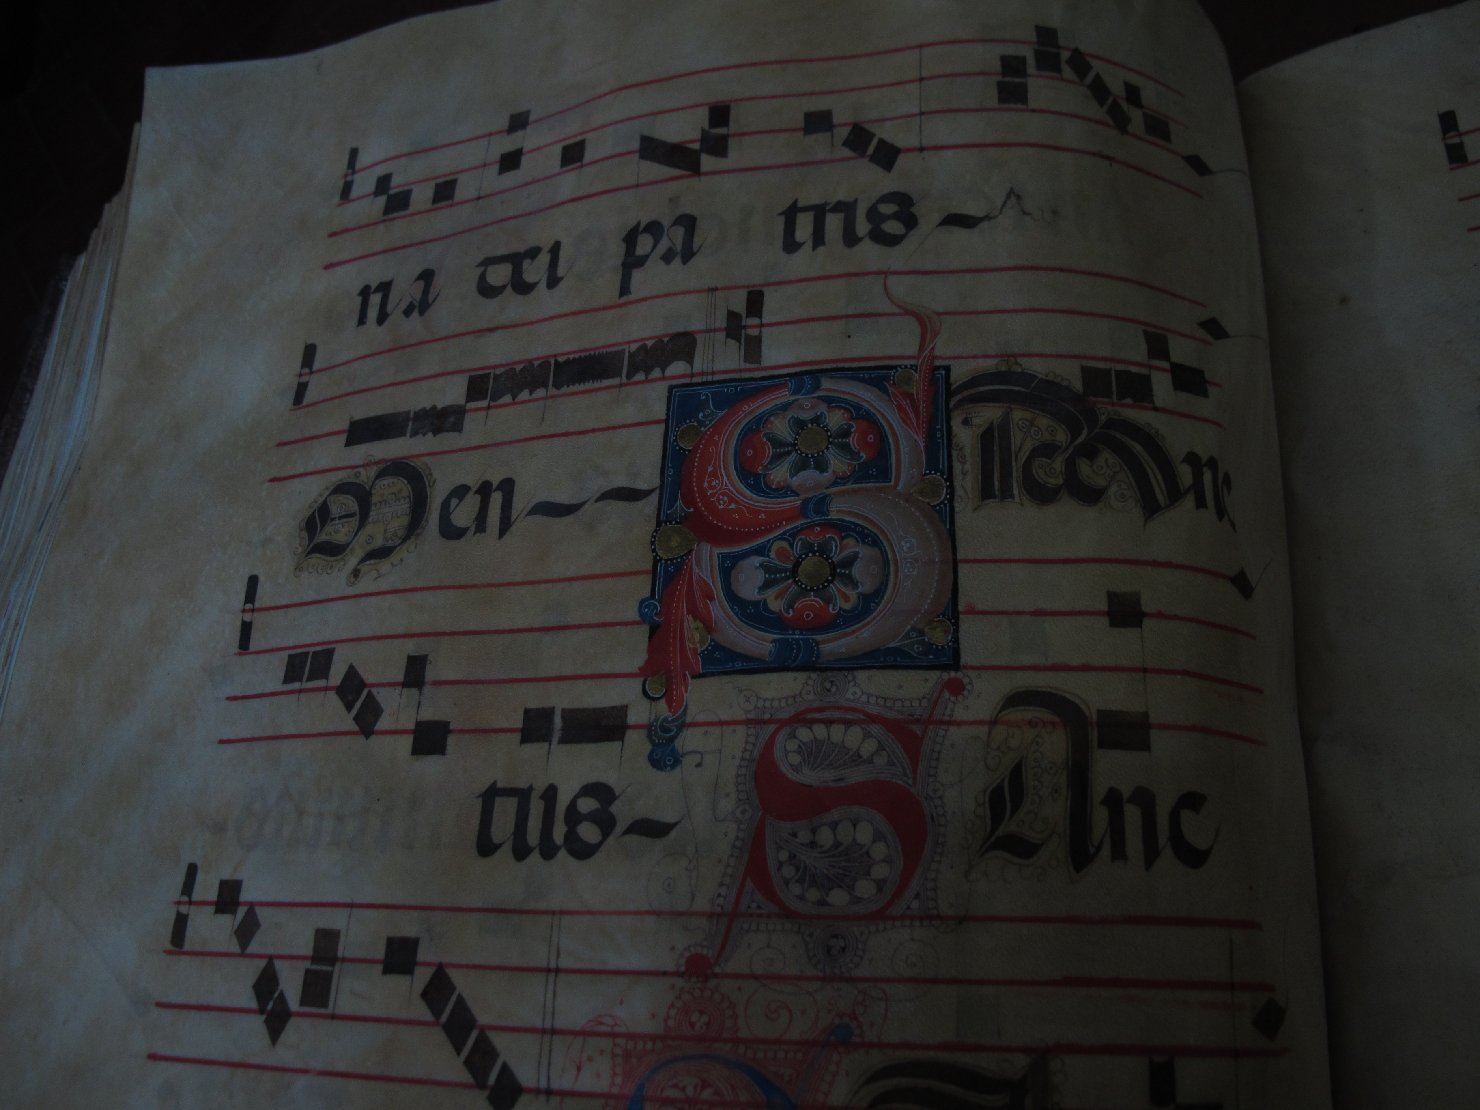 na dei pa tris
Men SAnc
tus SAnc